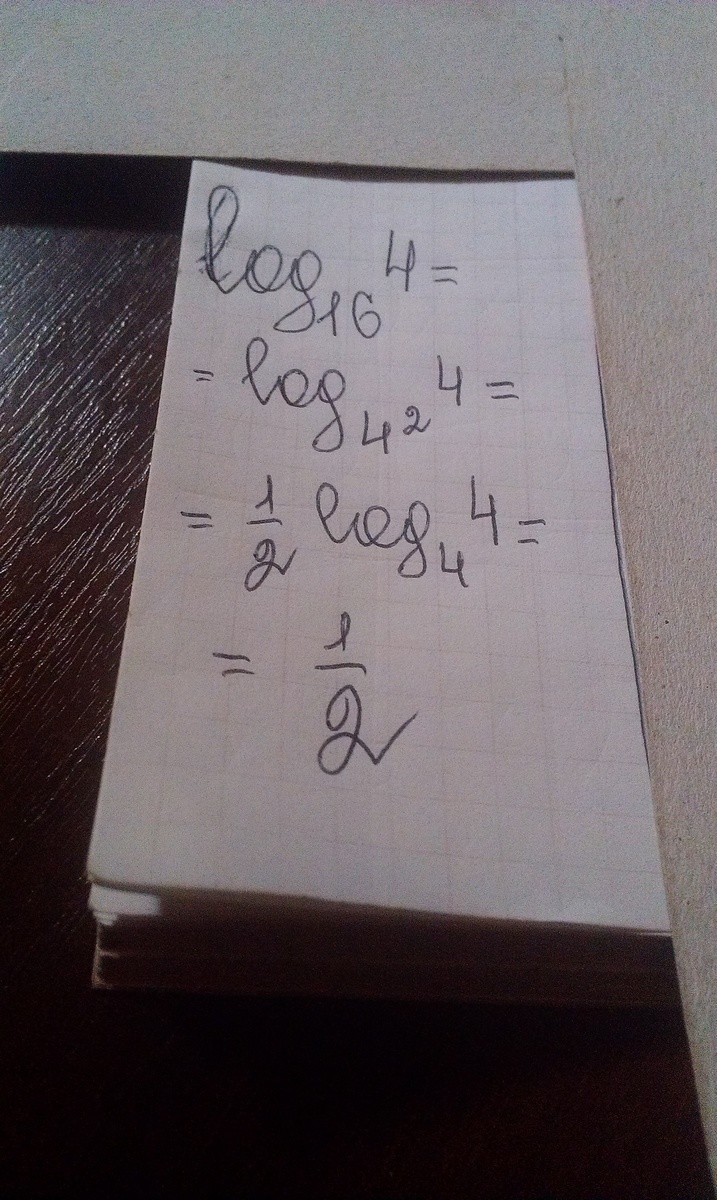 log₁₆ 4 =
= log₄² 4 =
= 1/2 log₄ 4 =
= 1/2